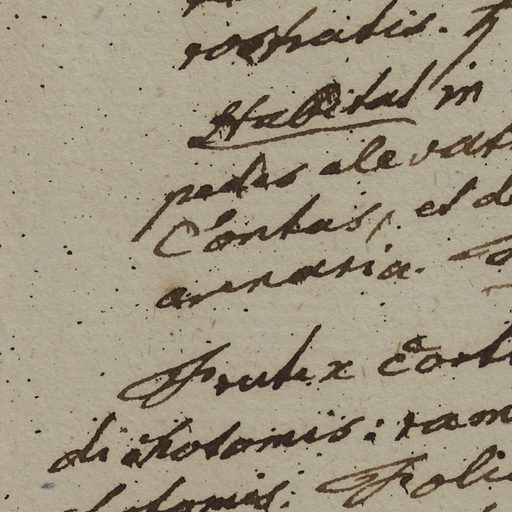 rostratis.
Habitat in
pedes elevat
Contas, et d
arenaria.
Frutex Cort
dichotomis: ram
Foli